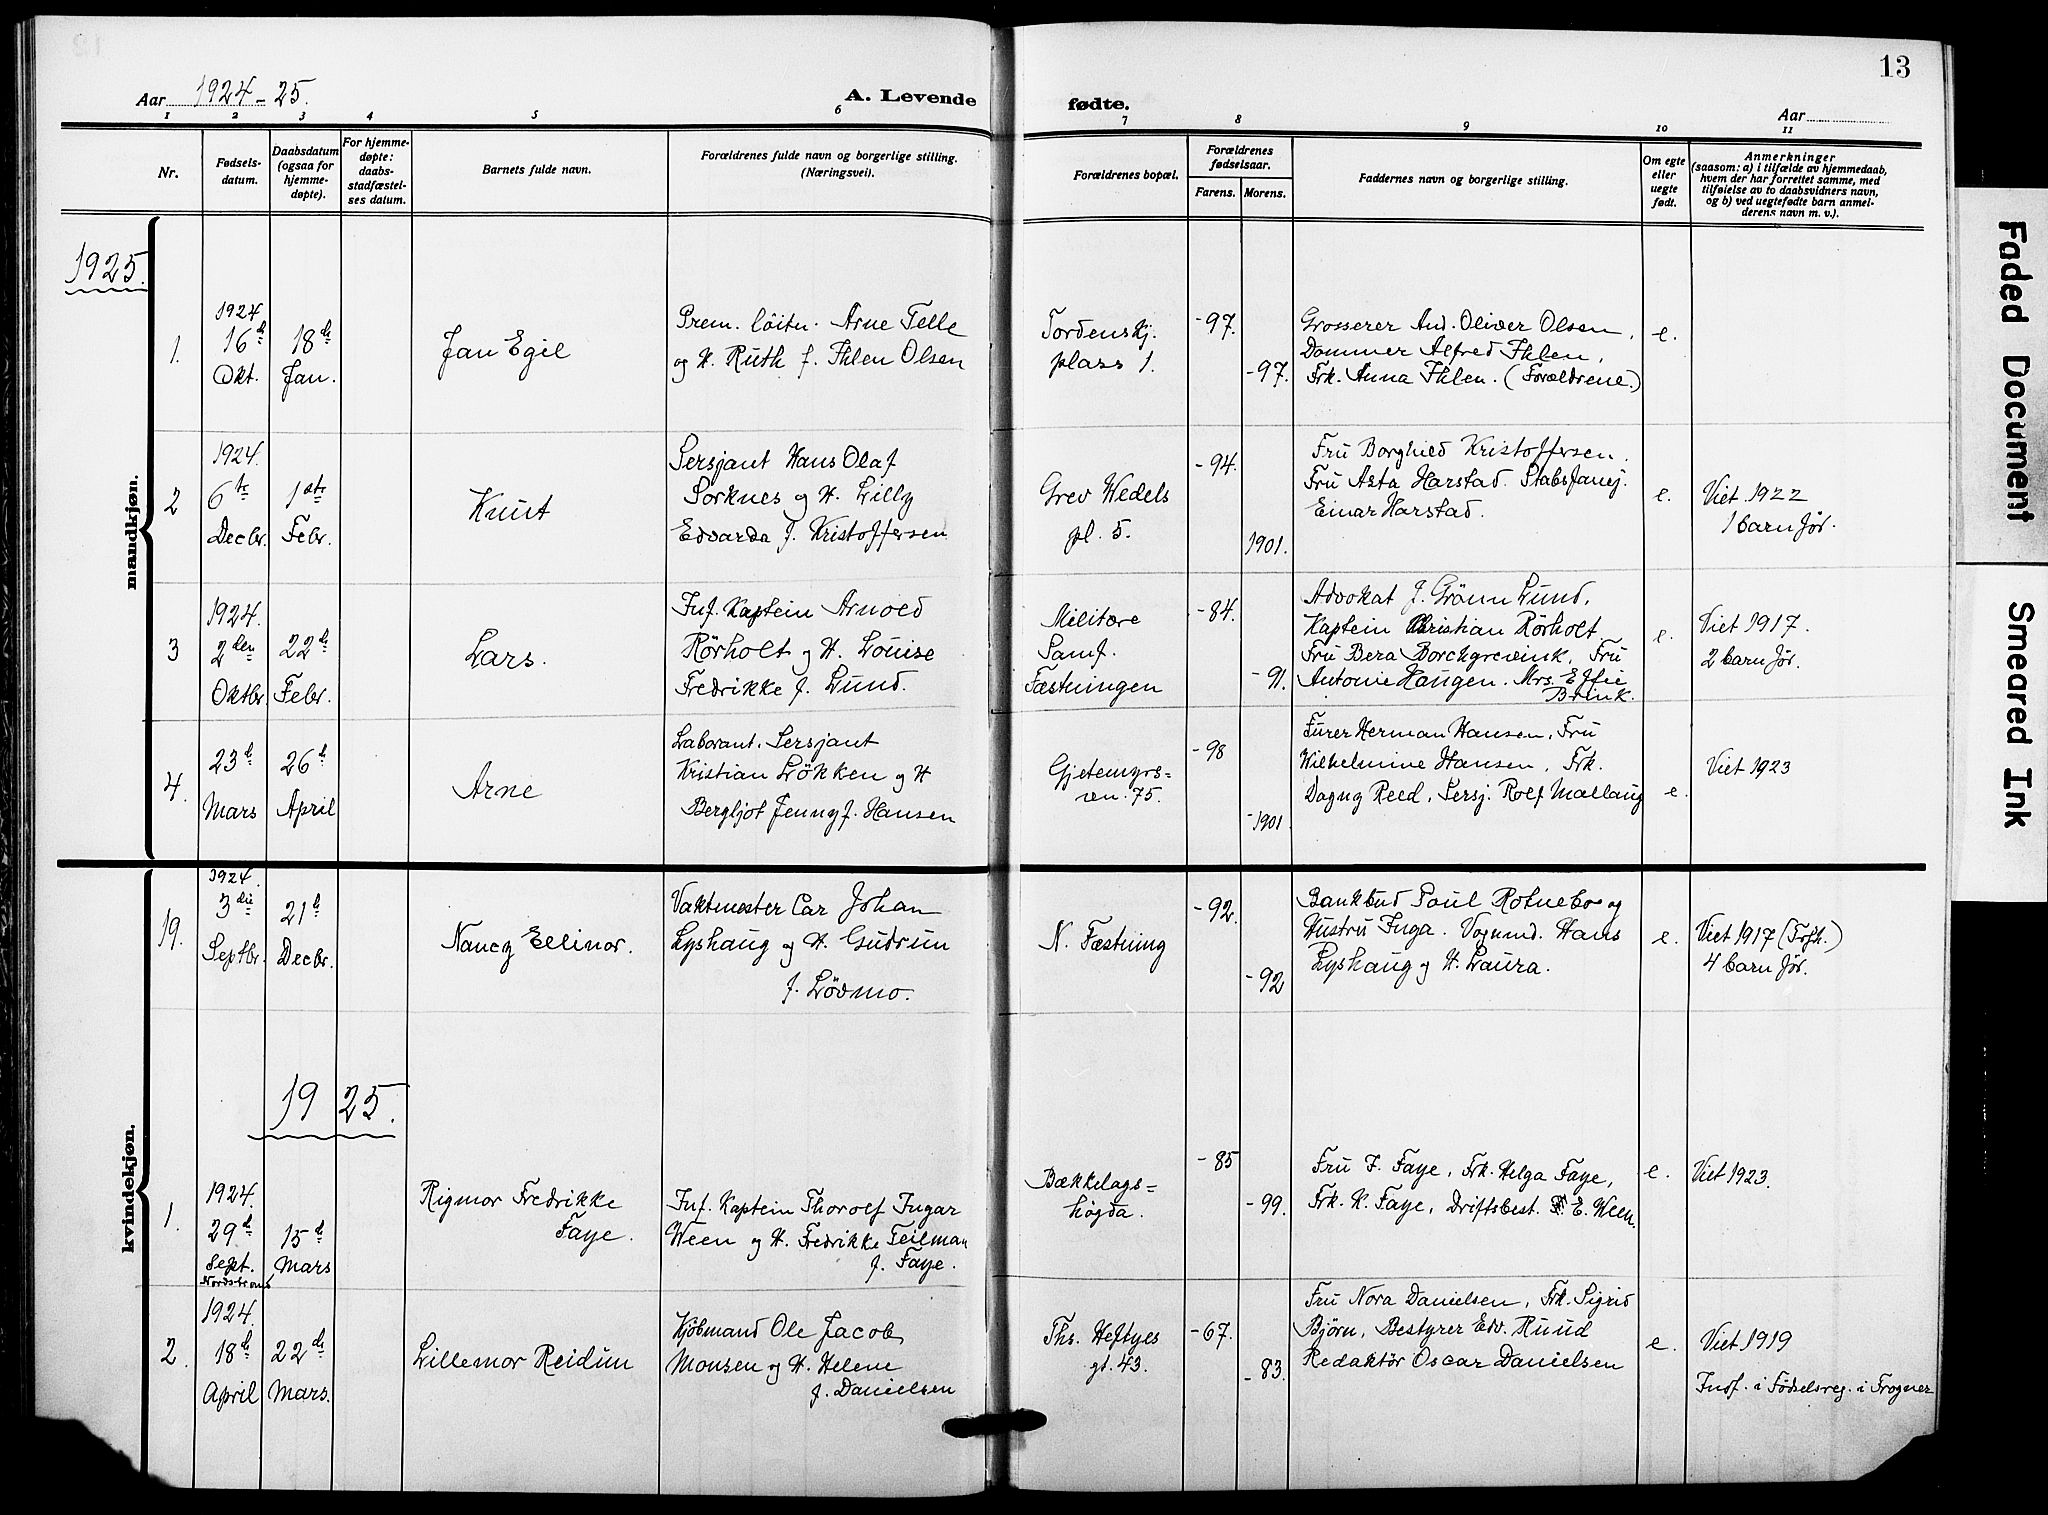 13
Aar 1924-25.
A. Levende fødte.
Aar
1 2 3 4 5 6 7 8 9 10 11
Nr.
Fødsels-
datum.
Daabsdatum
(ogsaa for
hjemme-
døpte).
For hjemme-
døpte:
daabs-
stadfæstel-
ses datum.
Barnets fulde navn.
Forældrenes fulde navn og borgerlige stilling.
(Næringsvei).
Forældrenes bopæl.
Forældrenes
fødselsaar.
Farens. Morens.
Faddernes navn og borgerlige stilling.
Om egte
eller
uegte
født.
Anmerkninger
(saasom: a) i tilfælde av hjemmedaab,
hvem der har forrettet samme, med
tilføielse av to daabsvidners navn,
og b) ved uegtefødte barn anmel-
derens navn m. v.).
mandkjøn.
1925.
1.
1924.
16de
Okt.
18de
Jan.
Jan Egil
Prem. löitn. Arne Telle
og H. Ruth f. Ihlen Olsen
Tordenskj.
plass 1.
-97.
-97.
Grosserer And. Oliver Olsen,
Dommer Alfred Ihlen,
Frk. Anna Ihlen. (Forældrene.)
e.
2
1924.
6te
Decbr.
1ste
Febr.
Knut
Sersjant Hans Olaf
Sorknes og H. Lilly
Edvarda f. Kristoffersen
Grev Wedels
pl. 5.
-94.
1901.
Fru Borghild Kristoffersen.
Fru Asta Harstad. Stabsfanej.
Einar Harstad.
e.
Viet 1922
1 barn før.
3
1924.
2den
Oktbr.
22de
Febr.
Lars.
Inf. Kaptein Arnold
Rörholt og H. Louise
Fredrikke f. Lund.
Militære
Samf.
Fæstningen
-84.
-91.
Advokat J. Grönn Lund,
Kaptein Christian Rörholt
Fru Bera Borchgrevink, Fru
Antonie Haugen. Mrs. Effie
Brink.
e.
Viet 1917.
2 barn før.
4.
23de
Mars
26de
April
Arne
Laborant. Sersjant
Kristian Lökken og H
Bergljot Jenny f. Hansen
Gjetemyrs-
vn. 75.
-98
-1901.
Furer Herman Hansen, Fru
Wilhelmine Hansen, Frk.
Dagny Reed, Sersj. Rolf Mallaug
e.
Viet 1923
kvindekjøn.
19.
1924.
3die
Septbr.
21de
Decbr.
Nancy Ellinor.
Vaktmester Car Johan
Lyshaug og H. Gudrun
f. Lövmo.
N. Fæstning
-92.
-92
Bankbud Paul Rotneboe og
Hustru Inga. Vognmd. Hans
Lyshaug og H. Laura.
e.
Viet 1917 (Trjh.)
4 barn før.
1925.
1.
1924.
29de
Sept.
Nordstrand
15de
Mars
Rigmor Fredrikke
Faye.
Inf. Kaptein Thorolf Ingar
Ween og H. Fredrikke Teilman
f. Faye.
Bækkelags=
högda.
-85
-99.
Fru F. Faye, Frk. Helga Faye,
Frk. K. Faye, Driftsbest. E. Ween.
e.
Viet 1923.
2.
1924.
18de
April
22de
Mars.
Lillemor Reidun
Kjöbmand Ole Jacob
Monsen og H. Helene
f. Danielsen
Ths. Heftyes
gt. 43.
-67.
-83.
Fru Nora Danielsen, Frk. Sigrid
Björn, Bestyrer Edv. Ruud
Redaktör Oscar Danielsen
e.
Viet 1919
Indf. i Fødselsreg. i Frogner
Faded Document
Smeared Ink